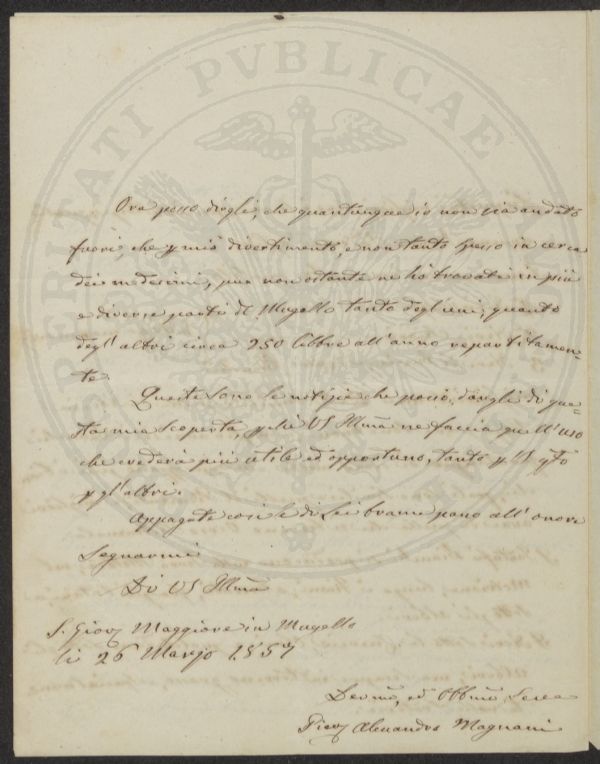 Ora posso dirgli, che quantunque io non sia andato
fuori, che p mio divertimento, e non tanto spesso in cerca
dei medesimi, pur non ostante ne hò trovati in più
e diverse parti del Mugello tanto degl'uni, quanto
degl'altri circa 250 libbre all'anno repartitamen-
te.
Queste sono le notizie che posso dargli di que-
sta mia scoperta, p chè VS Illma ne faccia quell'uso
che crederà più utile ed opportuno, tanto p
p gl'altri.
Appagate così le di Lei brame passo all'onore
segnarmi
Di VS Illma
S. Giov Maggiore in Mugello
li 26 Marzo 1857
Devmo, ed Obbmo Serva
Alessandro Magnani
PVBLICAE